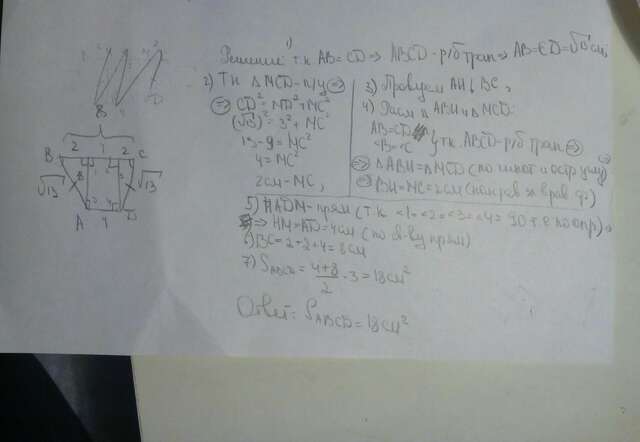 Решение 1) т.к AB = CD => ABCD - р/б трап => AB = CD = √13 см
2) Т.к △MCD - п/у =>
=> CD² = MD² + MC²
(√13)² = 3² + MC²
13 - 9 = MC²
4 = MC²
2см - MC,
3) Проведем AH ⊥ BC,
4) Расм △ ABH и △MCD:
AB = CD
<B = <C } т.к. ABCD - р/б трап =>
=> △ABH = △MCD (по гипот и остр углу) =>
=> BH = MC = 2см
5) HADM - прям (т.к <1 = <2 = <3 = <4 = 90 т.е по опр) =>
=> HM = AD = 4см (по св-ву прям)
6) BC = 2 + 2 + 4 = 8см
7) S ABCD = 4+8/2 · 3 = 18 см²
Ответ: S ABCD = 18 см²
B
2
2
B
C
√13
√13
A
D